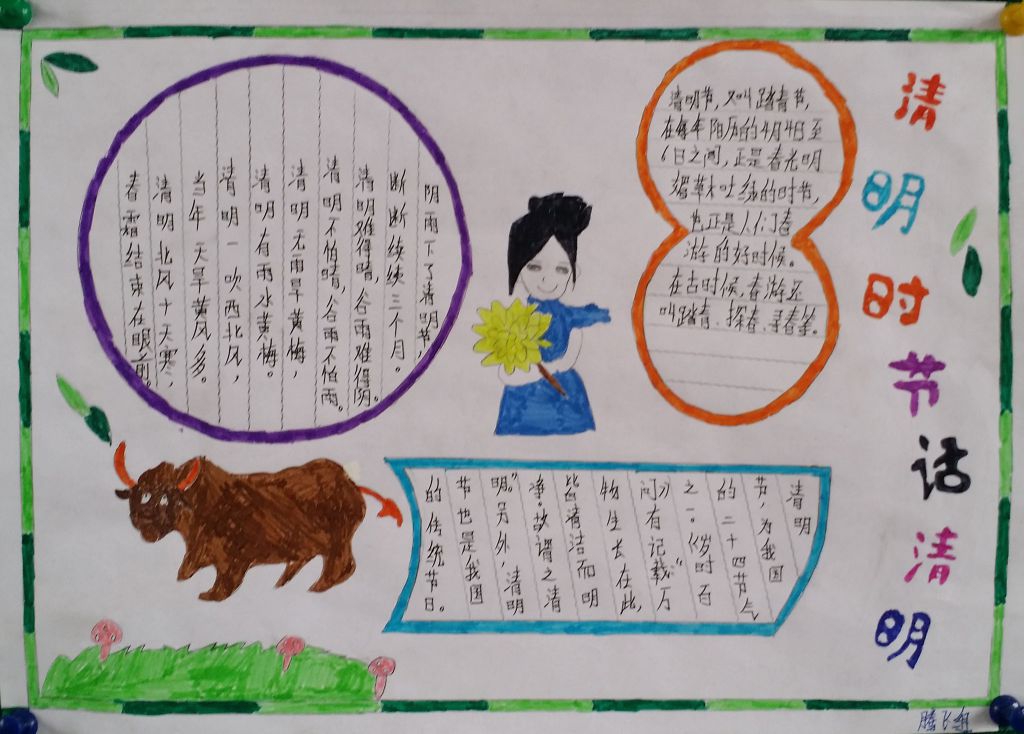 清明时节话清明
阴雨下了清明节，
断断续续三个月。
清明难得晴，谷雨难得阴。
清明不怕晴，谷雨不怕雨。
清明无雨旱黄梅，
清明有雨水黄梅。
清明一吹西北风，
当年天旱黄风多。
清明北风十天寒，
春霜结束在眼前。
清明节，又叫踏青节，
在每年阳历的4月4日至
6日之间，正是春光明
媚草木吐绿的时节，
也正是人们春
游的好时候。
在古时候，春游还
叫踏青、探春、寻春等。
清明
节，为我国
的二十四节气
之一。《岁时百
问》有记载:“万
物生长在此，
皆清洁而明
净。故谓之清
明。”另外，清明
节也是我国
的传统节日。
腾飞组